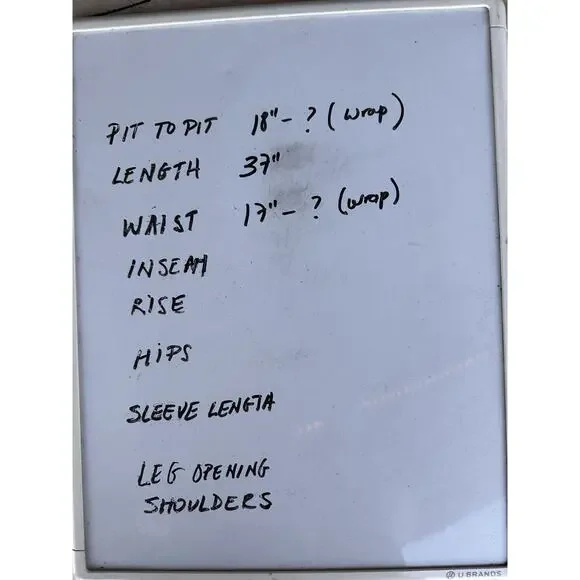 PIT TO PIT 18" - ? (wrap)
LENGTH 37"
WAIST 17" - ? (wrap)
INSEAM
RISE
HiPS
SLEEVE LENGTH
LEG OPENING
SHOULDERS
U BRANDS